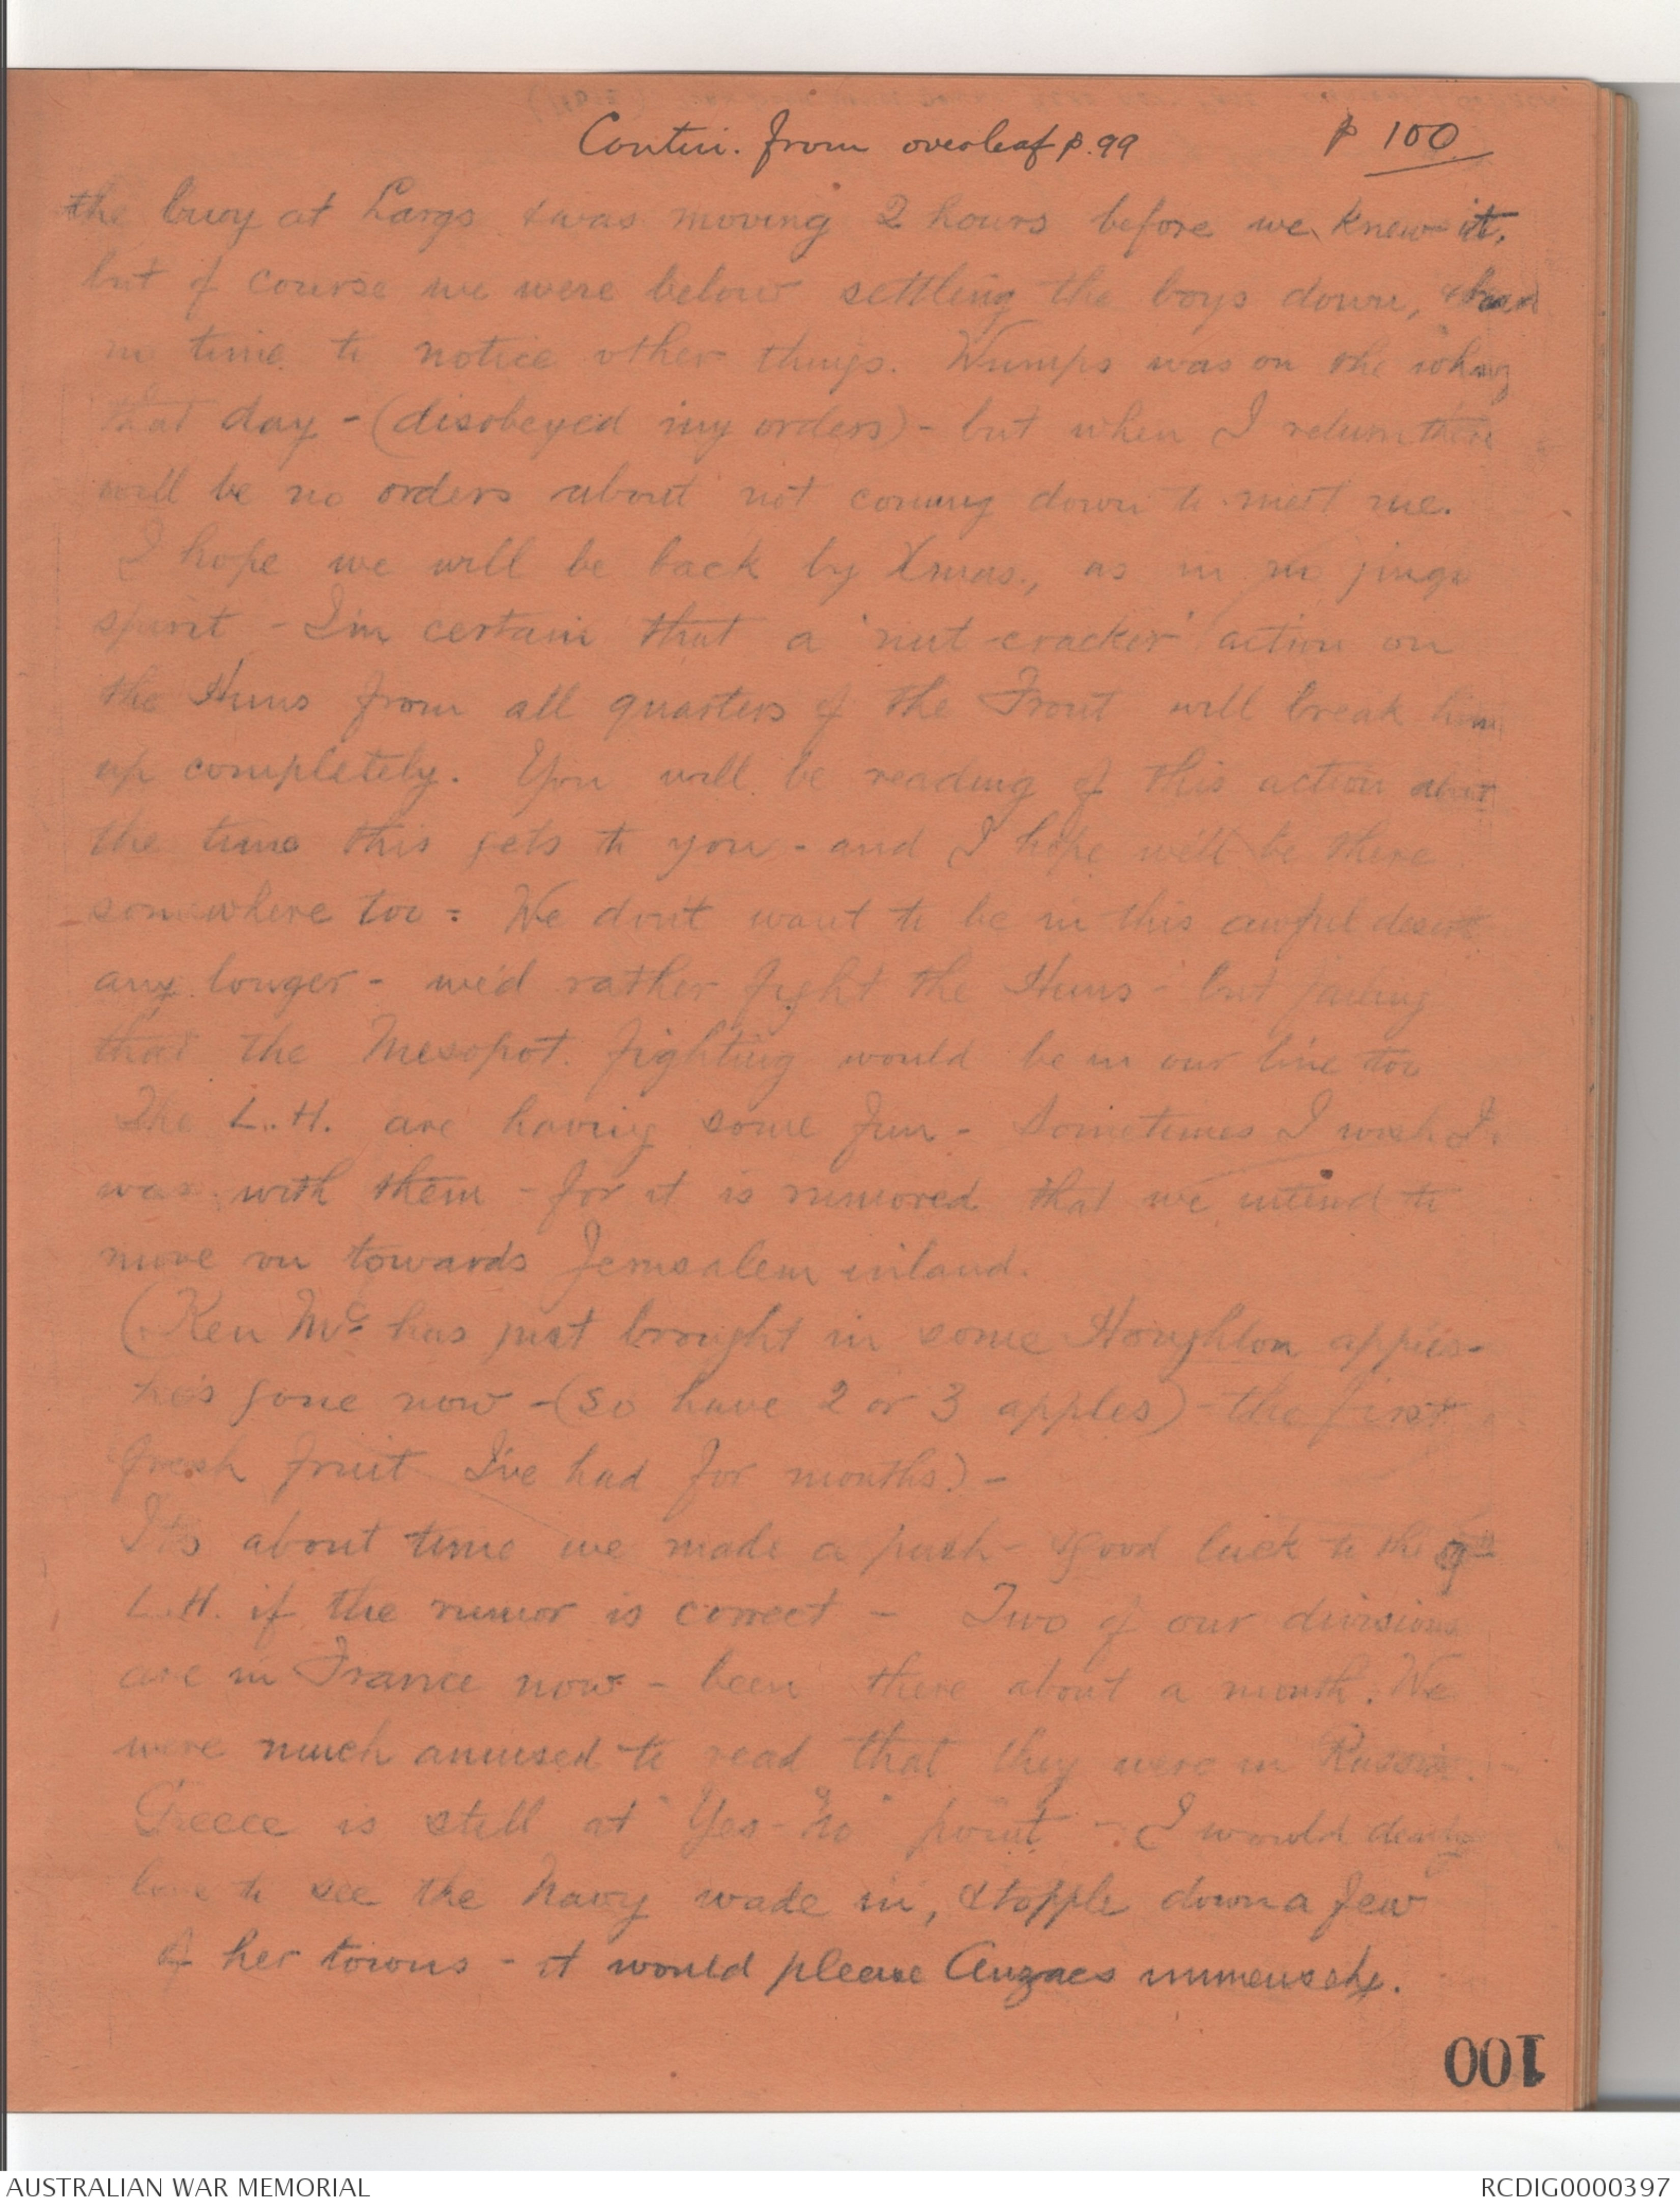 Contin. from overleaf p.99
p 100
the buoy at Largs & was moving 2 hours before we knew it,
but of course we were below settling the boys down, & had
no time to notice other things. Wumps was on the wharf
that day - (disobeyed my orders) - but when I return there
will be no orders about not coming down to meet me.
I hope we will be back by Xmas., as in no jingo
spirit - I'm certain that a "nut-cracker" action on
the Huns from all quarters of the Front will break him
up completely. You will be reading of this action about
the time this gets to you - and I hope we'll be there
somewhere too = We dont want to be in this awful desert
any longer - we'd rather fight the Huns - but failing
that the Mesopot. fighting would be in our line too
The L.H. are having some fun - Sometimes I wish I
was with them - for it is rumored that we intend to
move on towards Jerusalem inland.
(Ken Mc has just brought in some Houghton apples -
he's gone now - (so have 2 or 3 apples) - the first
fresh fruit I've had for months.) -
It's about time we made a push - & good luck to the 9th
L.H. if the rumor is correct - Two of our divisions
are in France now - been there about a month. We
were much amused to read that they were in Russia.
Greece is still at "Yes-No" point - I would dearly
love to see the Navy wade in, & topple down a few
of her towns - it would please Anzacs immensely.
100
AUSTRALIAN WAR MEMORIAL
RCDIG0000397